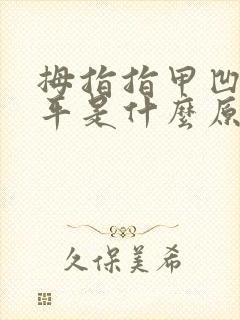 拇指指甲凹
年是什麼原
久保美希